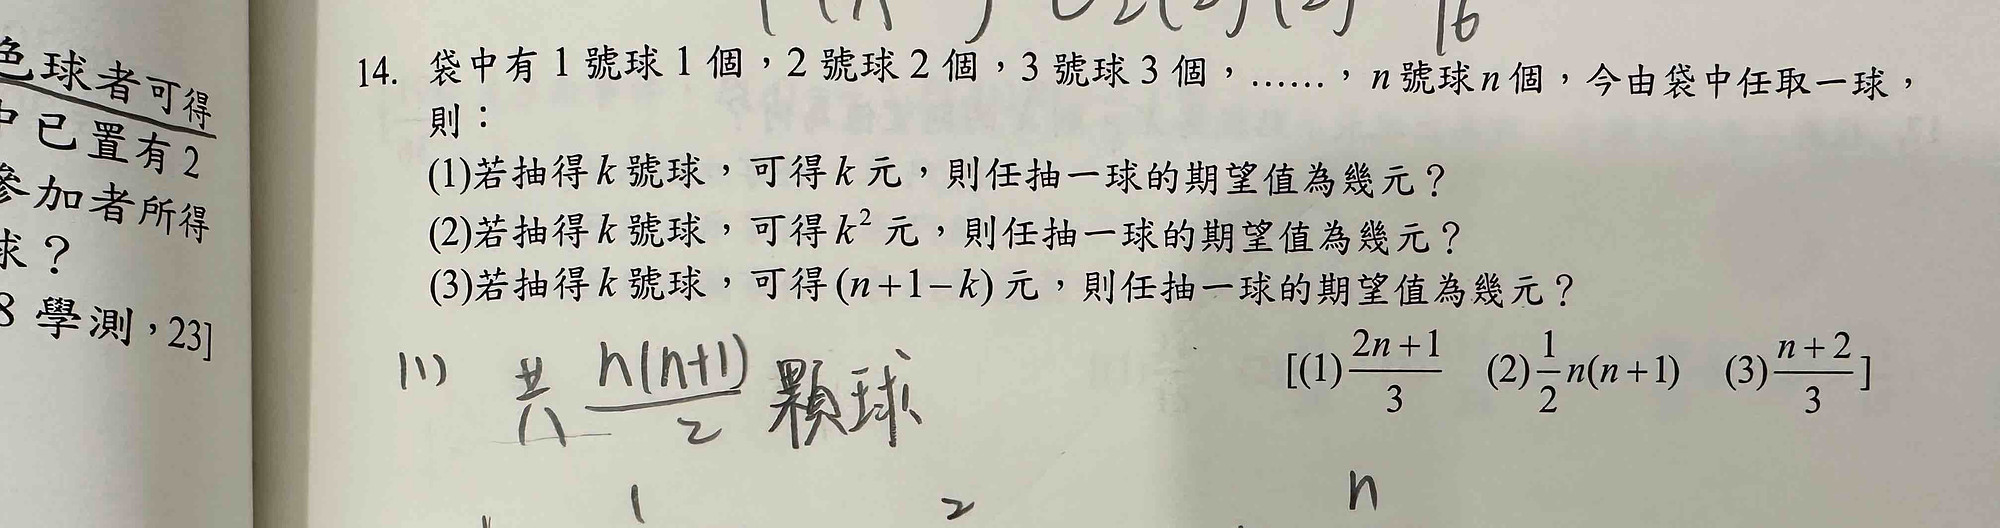 色球者可得
中已置有2
參加者所得
球？
8 學測，23]
14. 袋中有 1 號球 1 個，2 號球 2 個，3 號球 3 個，……，n 號球 n 個，今由袋中任取一球，
則：
(1)若抽得 k 號球，可得 k 元，則任抽一球的期望值為幾元？
(2)若抽得 k 號球，可得 k² 元，則任抽一球的期望值為幾元？
(3)若抽得 k 號球，可得 (n+1−k) 元，則任抽一球的期望值為幾元？
[(1) (2n+1)/3 (2) 1/2 n(n+1) (3) (n+2)/3]
(1) 共 n(n+1)/2 顆球
1 2 n